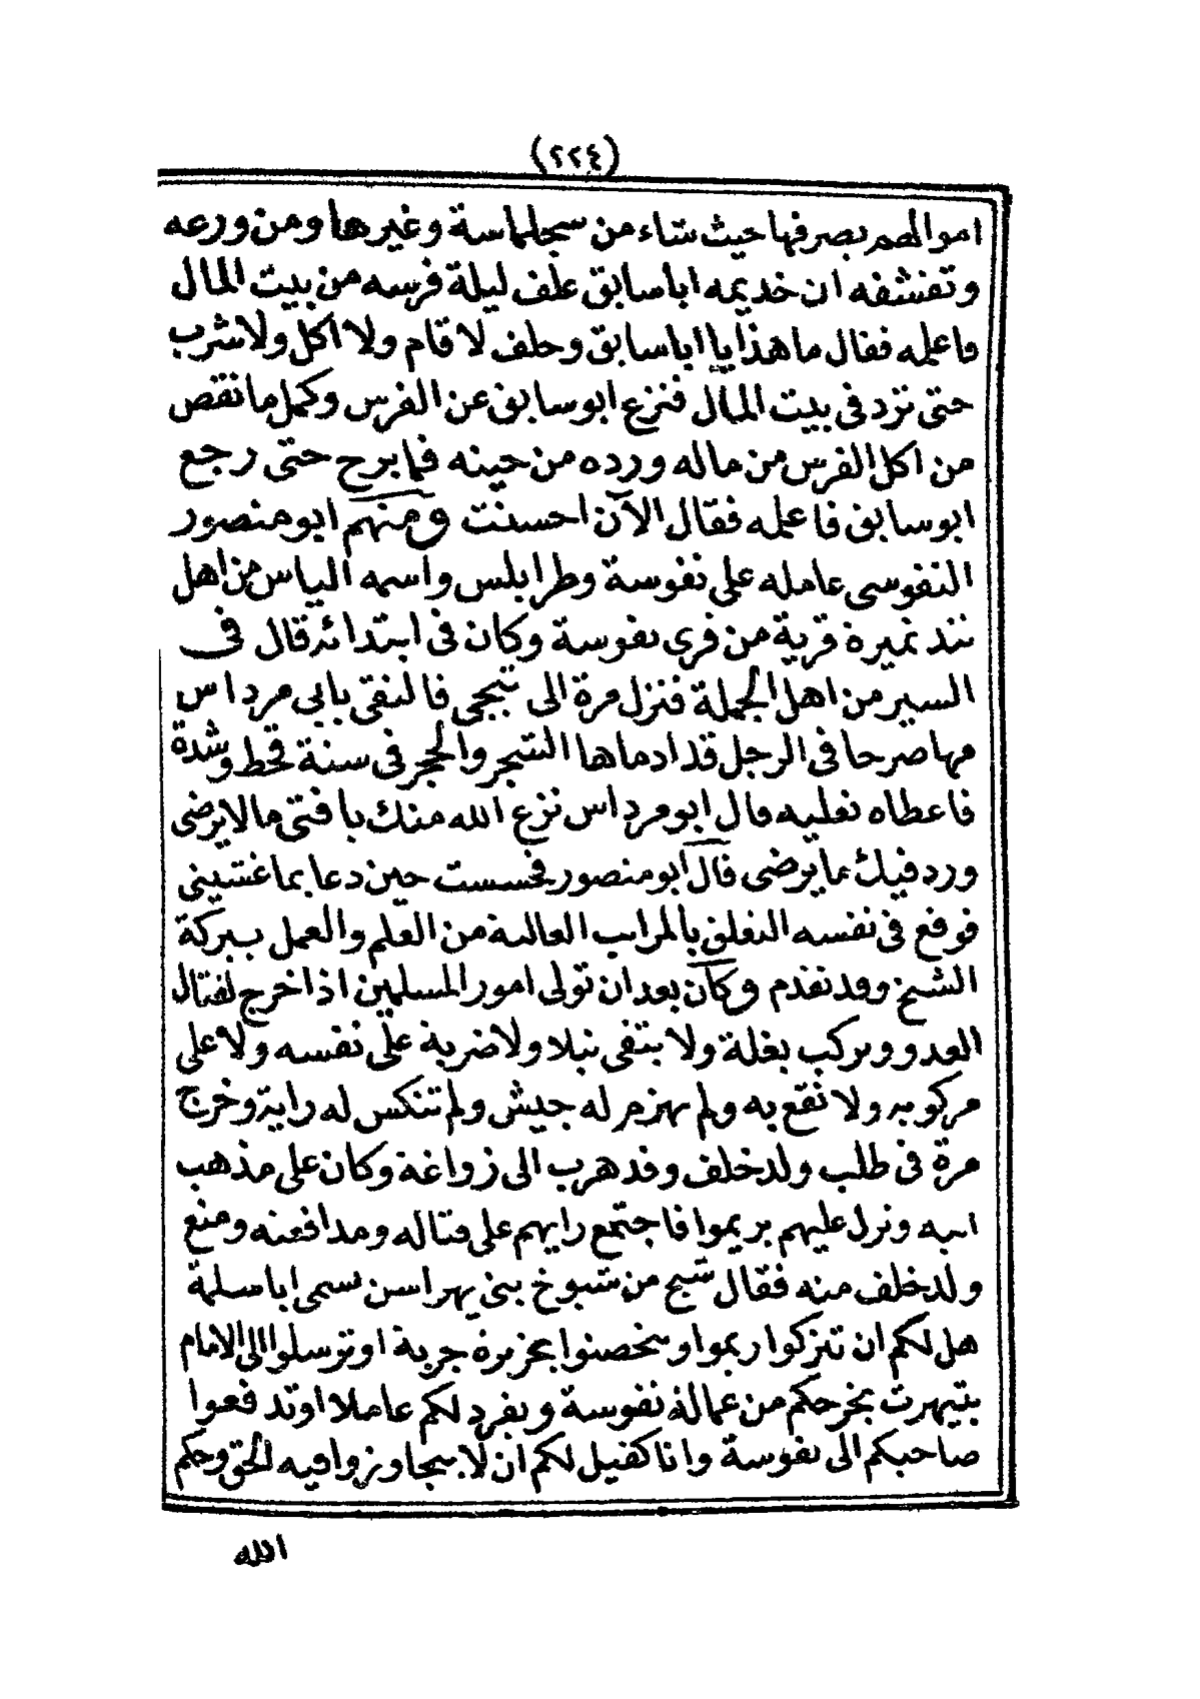 (٢٢٤)
اموالهم يصرفها حيث شاء من سجلماسة وغيرها ومن ورعه
وتقشفه ان خديمه اباسابق علف ليلة فرسه من بيت المال
فاعلمه فقال ماهذا يااباسابق وحلف لاقام ولا اكل ولاشرب
حتى نزد فى بيت المال فنزع ابوسابق عن الفرس وكمل مانقص
من اكل الفرس من ماله ورده من حينه فمابرح حتى رجع
ابوسابق فاعلمه فقال الآن احسنت ومنهم ابو منصور
النفوسى عامله على نفوسة وطرابلس واسمه الياس من اهل
تندنميرة قرية من قرى نفوسة وكان فى ابتدائه قال فى
السير من اهل الجملة فنزل مرة الى تيجى فالتقى بابى مرداس
مهاصر حافى الرجل قد ادماها الشجر والحجر فى سنة قحط وشدة
فاعطاه نعليه قال ابو مرداس نزع الله منك يا فتى مالايرضى
ورد فيك مايرضى قال ابومنصور فحسست حين دعا بماغشينى
فوقع فى نفسه التعلق بالمراتب العالية من العلم والعمل ببركة
الشيخ وقد تقدم وكان بعد ان تولى امور المسلمين اذا خرج لقتال
العدو ويركب بغلة ولا يتقى نبلا ولا ضربة على نفسه ولا على
مركوبه ولا تقع به ولم يهزم له جيش ولم تنكس له راية وخرج
مرة فى طلب ولد خلف وقد هرب الى زواغة وكان على مذهب
ابيه ونزل عليهم بريموا فاجتمع رايهم على قتاله ومدافعته ومنع
ولد خلف منه فقال شيخ من شيوخ بنى يهراسن يسمى اباسلمة
هل لكم ان تتركوا ريموا وتتحصنوا بجزيرة جربة او ترسلوا الى الامام
بتيهرت يخرجكم من عمالة نفوسة ويفرد لكم عاملا او تدفعوا
صاحبكم الى نفوسة وانا كفيل لكم ان لا يتجاوزوا فيه الحق وحكم
الله